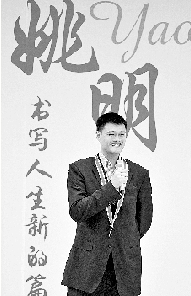 姚明
Yao
书写人生新的篇